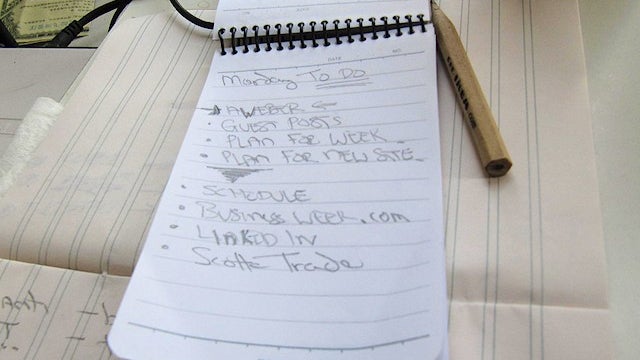 Monday TO DO
AWEBER
GUEST POSTS
PLAN FOR WEEK
PLAN FOR NEW SITE
SCHEDULE
BUSINESS WEEK.COM
LINKED IN
Scotte Trade
IKEA